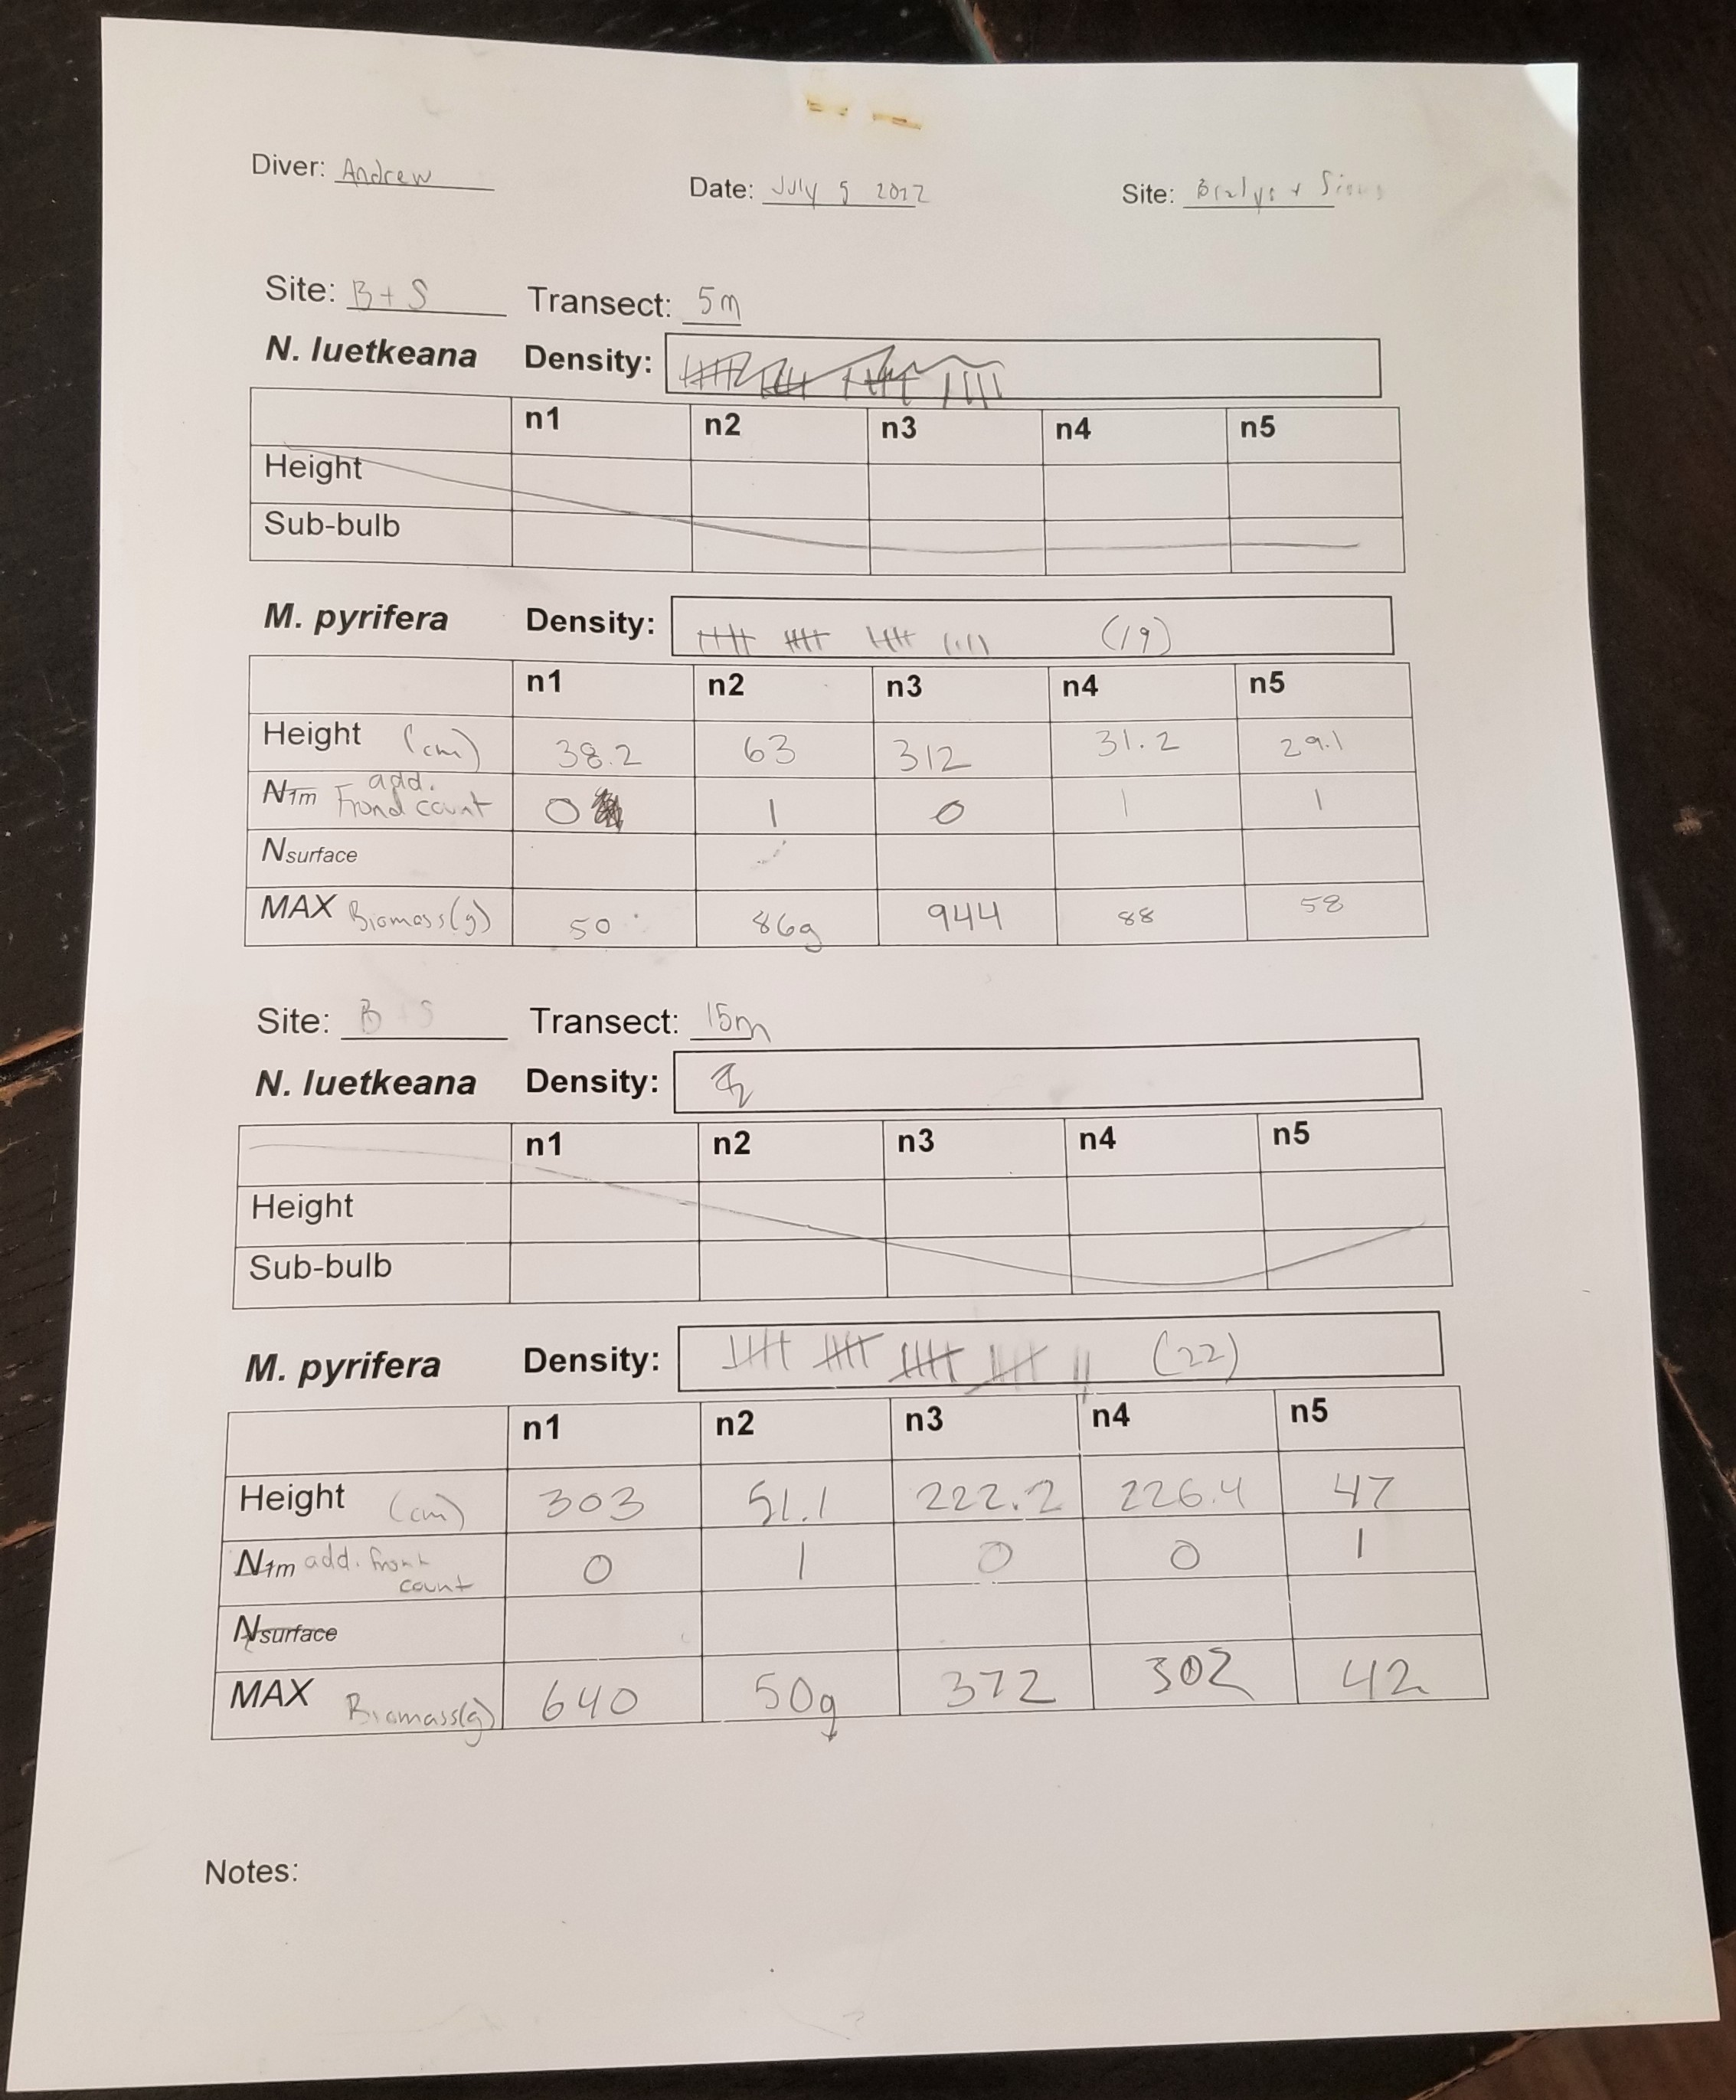 Diver: Andrew Date: July 5 2022 Site:
Site: B+S Transect: 5m
N. luetkeana Density:
n1 n2 n3 n4 n5
Height
Sub-bulb
M. pyrifera Density: (19)
n1 n2 n3 n4 n5
Height (cm) 38.2 63 312 31.2 29.1
N1m add. Frond count 0 1 0 1 1
Nsurface
MAX Biomass(g) 50 86g 944 88 58
Site: B+S Transect: 15m
N. luetkeana Density:
n1 n2 n3 n4 n5
Height
Sub-bulb
M. pyrifera Density: (22)
n1 n2 n3 n4 n5
Height (cm) 303 51.1 222.2 226.4 47
N1m add. front count 0 1 0 0 1
Nsurface
MAX Biomass(g) 640 50g 372 302 42
Notes: